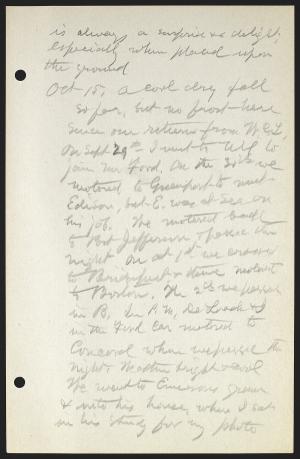 is always a surprise & a delight,
especially when placed upon
the ground
Oct 15, a cool dry fall
so far, but no frost here
since our return from W.C.L.
On Sept 29th I went to N.Y. to
join Mr Ford. On the 30th we
motored to Greenport to meet
Edison, but E. was at sea on
his job. We motored back
to Port Jefferson & passed the
night. On Oct 1st we crossed
to Bridgeport & thence motored
to Boston. The 2d we passed
in B. In P.M. De Loach & I
in the Ford car motored to
Concord where we passed the
night. Weather bright & cool
We went to Emersons grave
& into his house, where I sat
in his study for my photo